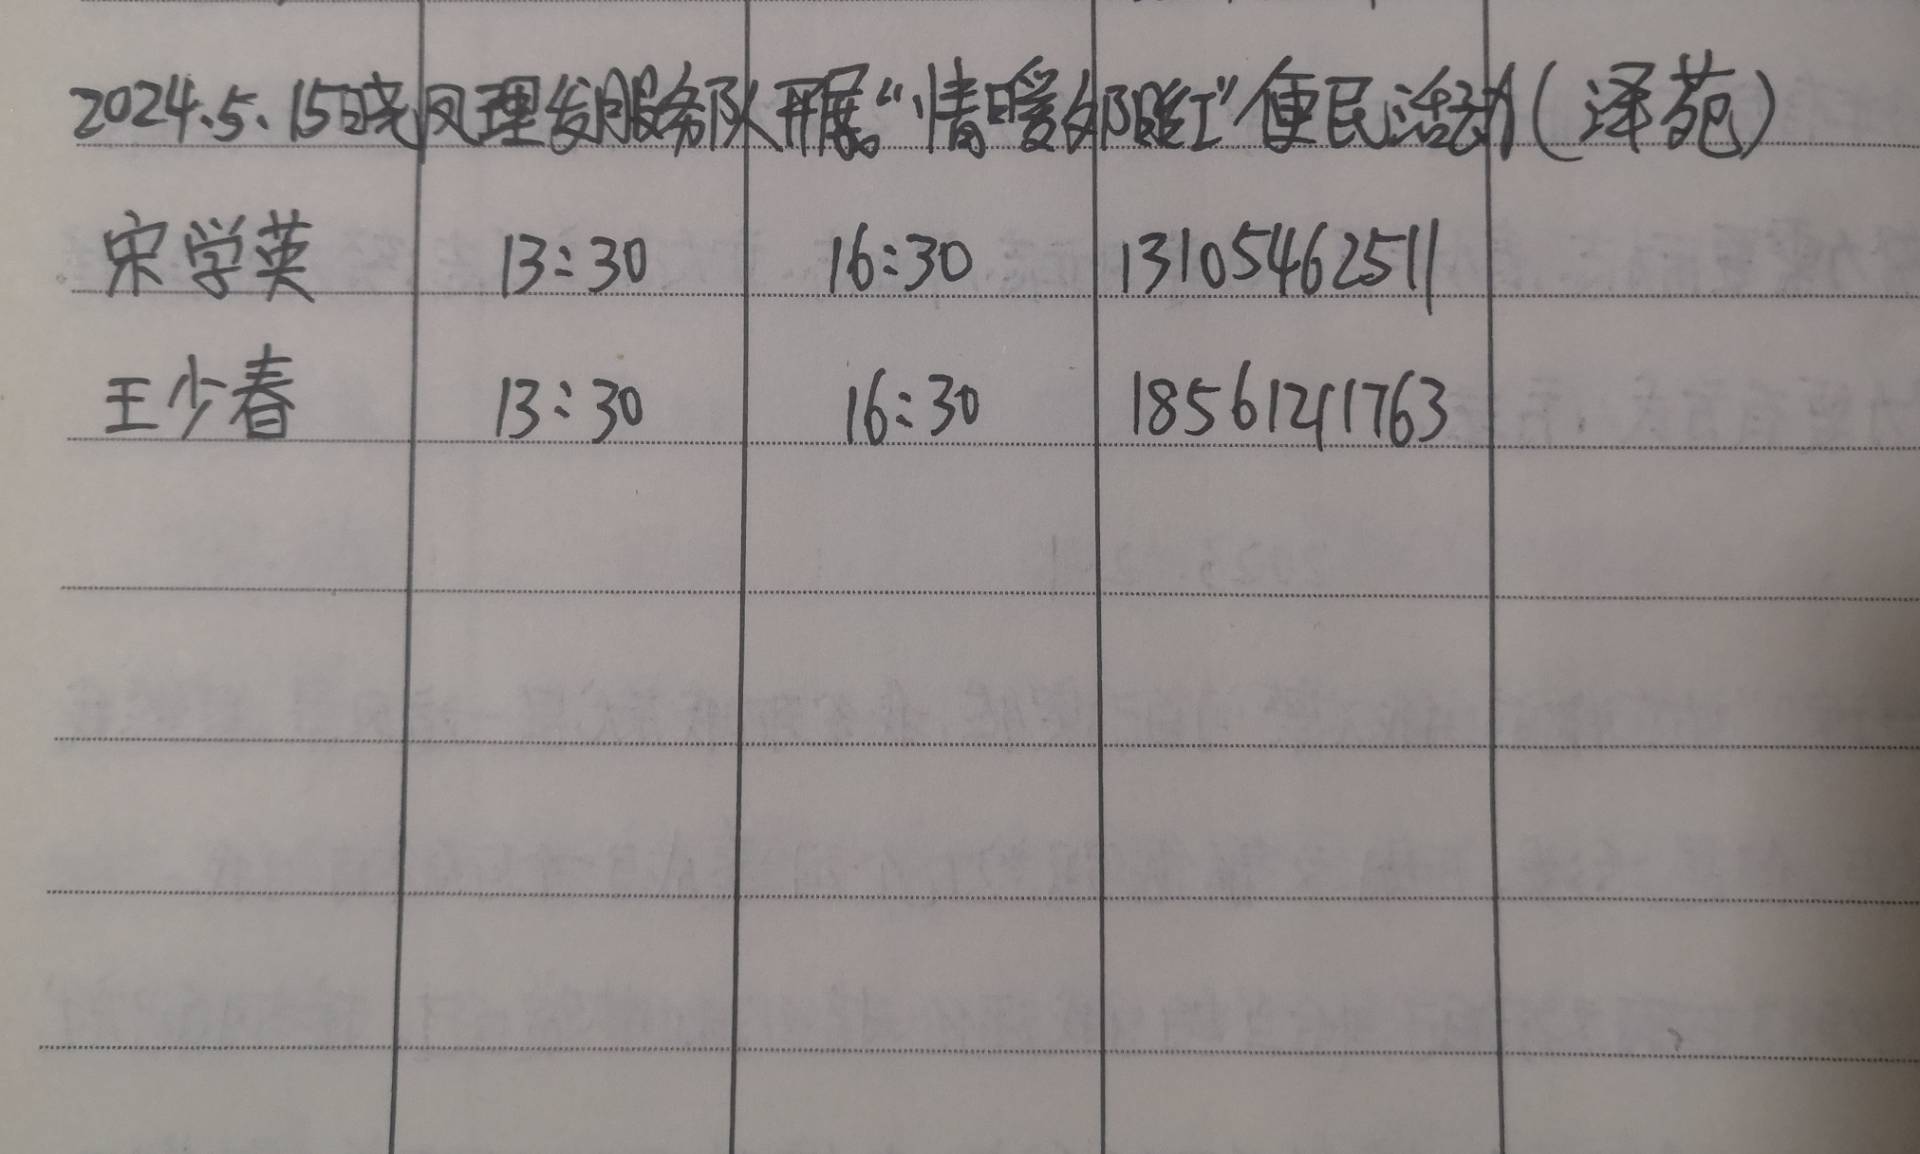 2024.5.15日晓风理发服务队开展“情暖夕阳红”便民活动(泽苑)
宋学英 13:30 16:30 13105462511
王少春 13:30 16:30 18561241763